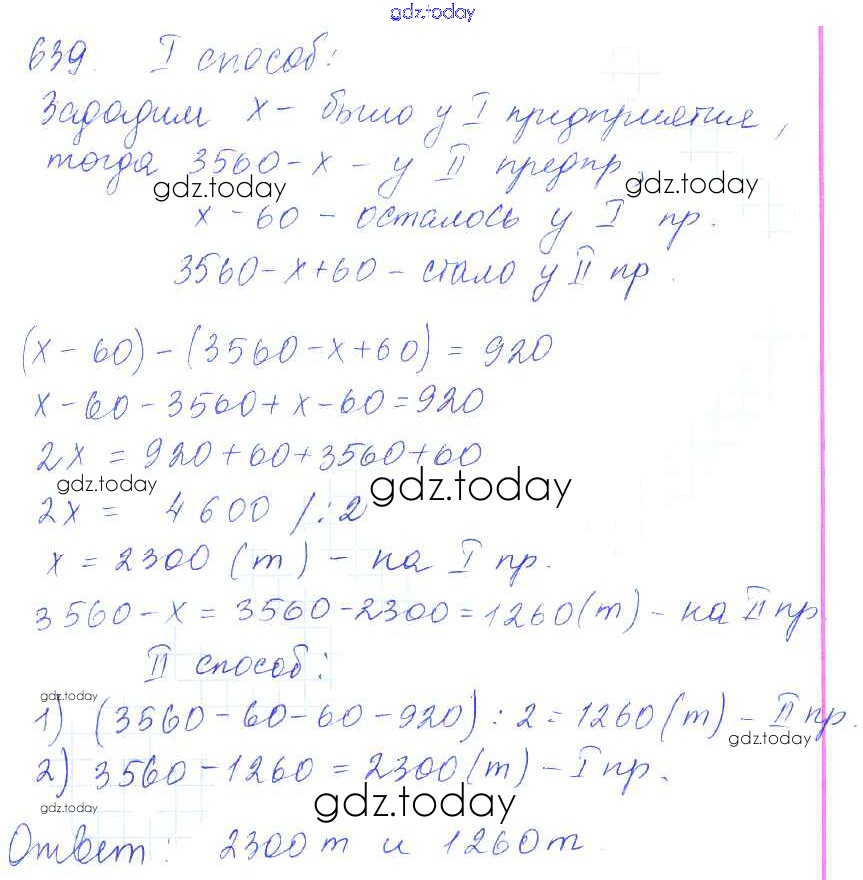 gdz.today
639. I способ:
Зададим x - было у I предприятия,
тогда 3560-x - у II предпр.
gdz.today gdz.today
x-60 - осталось у I пр.
3560-x+60 - стало у II пр.
(x-60)-(3560-x+60)=920
x-60-3560+x-60=920
2x=920+60+3560+60
gdz.today gdz.today
2x= 4600 /:2
x=2300 (т) - на I пр.
3560-x=3560-2300=1260(т) - на II пр
II способ:
gdz.today
1) (3560-60-60-920):2=1260(т) - II пр.
gdz.today
2) 3560-1260=2300(т) - I пр.
gdz.today gdz.today
Ответ: 2300т и 1260т